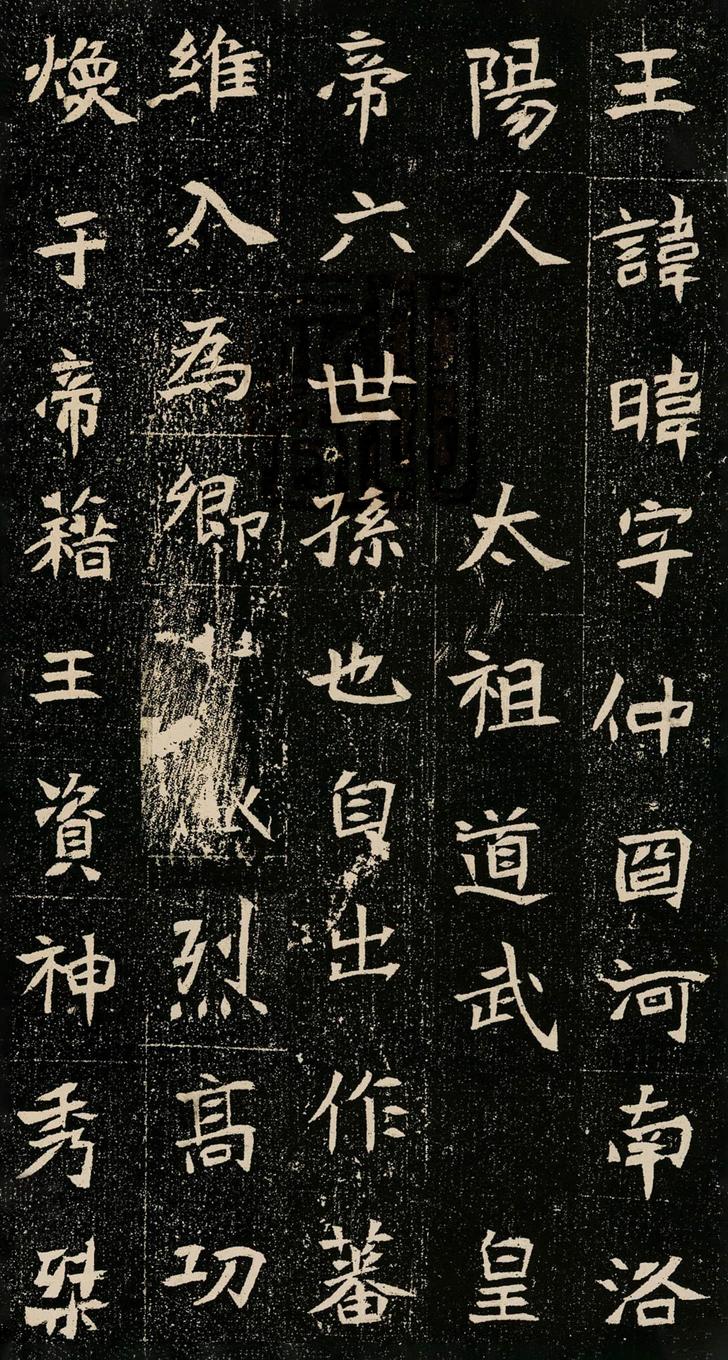 王諱暐字仲囧河南洛
陽人　太祖道武　皇
帝六世孫也自出作蕃
維入為卿烈髙功
煥于帝藉王資神秀桀